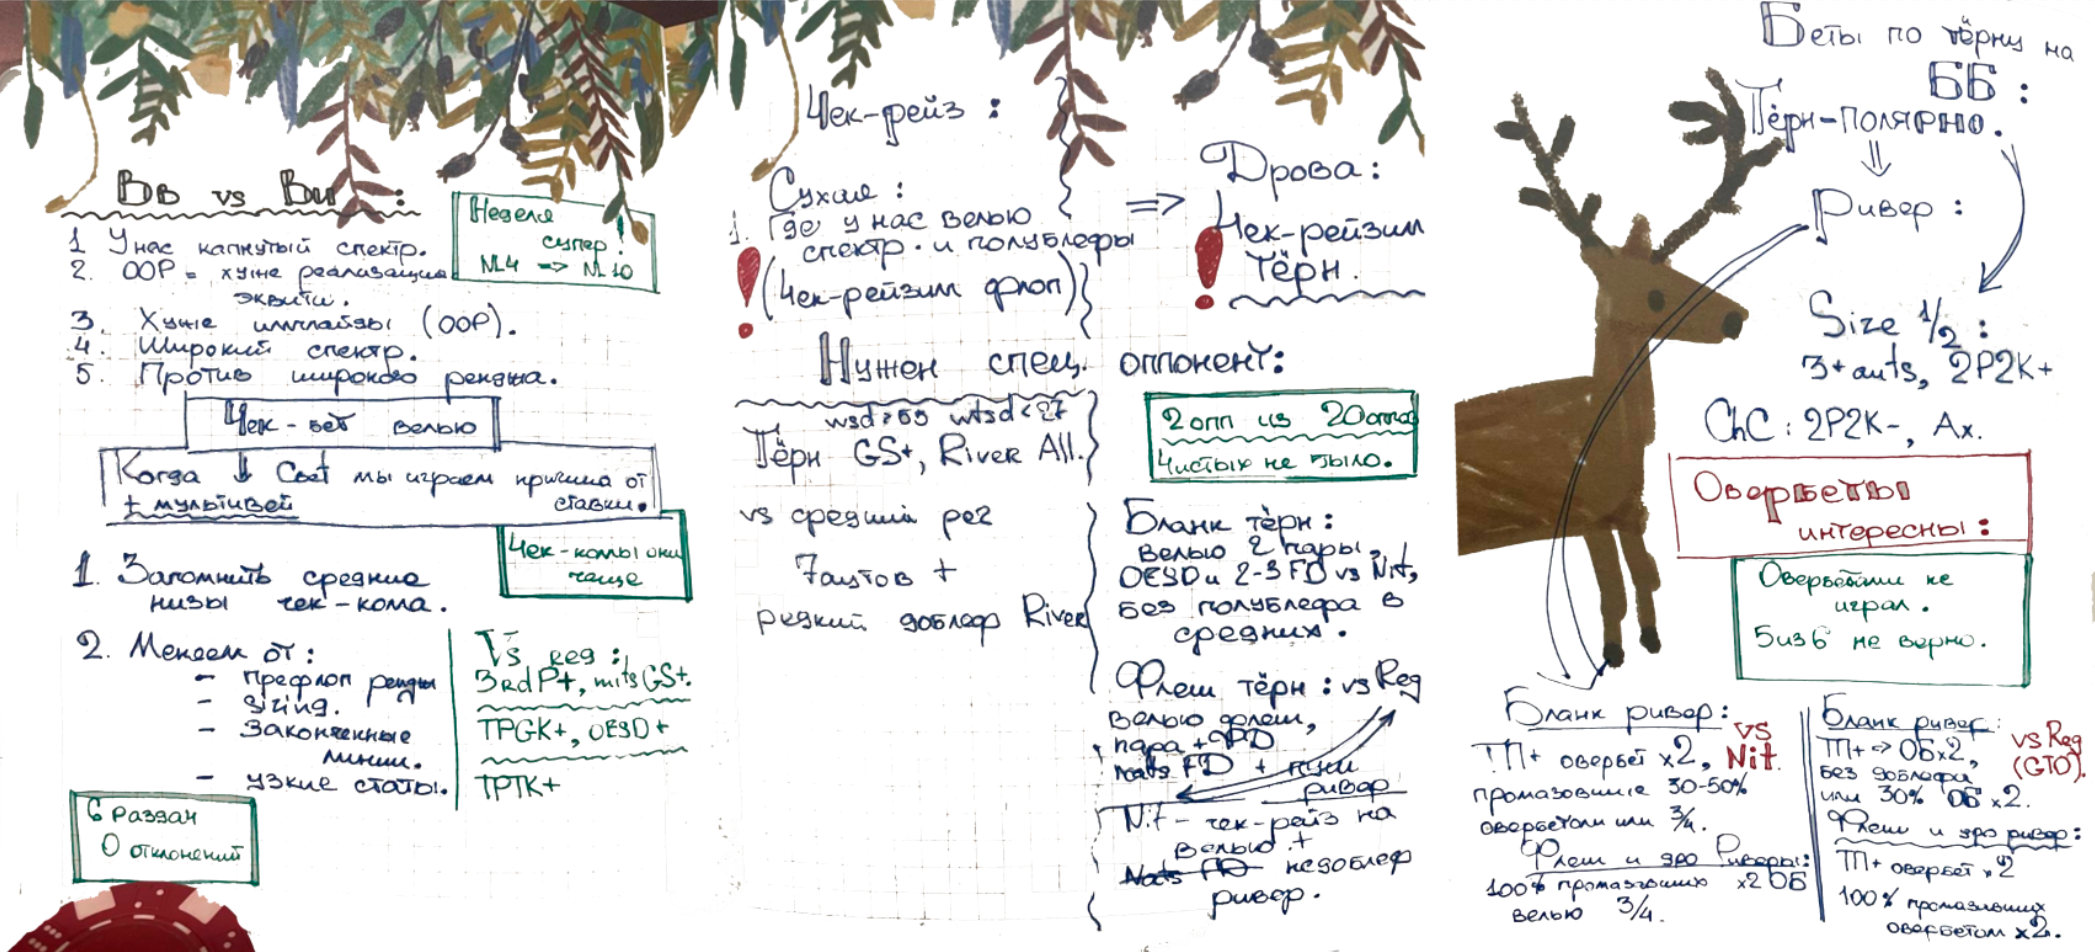 Вв vs Ви :
Неделя
супер!
NL4 => NL10
1 У нас капнутый спектр.
2. ООР = хуже реализация
эквити.
3. Хуже имплайды (ООР).
4. Широкий спектр.
5. Против широкого ренджа.
Чек-бет велью
Когда ↓ Cbet мы играем причина от
± мультивей ставки.
Чек-коллы они
чаще
1. Запомнить средние
низы чек-кола.
2. Меняем от:
- Префлоп ренджи
- Sizing.
- Законченные
линии.
- узкие статы.
Vs reg :
3rdP+, mitsGS+.
TPGK+, OESD+
TPTK+
6 раздач
0 отклонений
Чек-рейз :
Сухая :
1. Где у нас велью
спектр. и полублефы
(Чек-рейзим флоп)
=> Дрова :
Чек-рейзим
тёрн.
Нужен спец. оппонент:
wsd>55 wtsd<27
Тёрн GS+, River All.
2 опп из 20 оппов
Чистых не было.
vs средний рег
7 аутов +
редкий доблеф River
Бланк тёрн :
Велью 2 пары,
OESD и 2-3 FD vs Nit,
без полублефа в
средних.
Флеш тёрн : vs Reg
Велью флеш,
пара + FD
nats FD +
ривер
Nit - чек-рейз на
велью +
Nats FD недоблеф
ривер.
Беты по тёрну на
ББ :
Тёрн-полярно.
Ривер :
Size 1/2 :
3+ auts, 2P2K+
ChC : 2P2K-, Ax.
Овербеты
интересны :
Овербетами не
играл.
5 из 6 не верно.
Бланк ривер :
vs
Nit.
ТП+ овербет x2,
промазовшие 30-50%
овербетом или 3/4.
Флеш и эро Риверы:
100% промазавших x2 ОБ
велью 3/4.
Бланк ривер :
vs Reg
(GTO).
ТП+ => ОБx2,
без доблефа
или 30% ОБ x2.
Флеш и эро ривер :
ТП+ овербет x2
100% промазавших
овербетом x2.